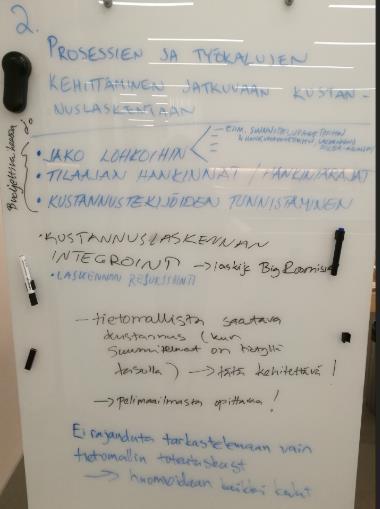 2.
PROSESSIEN JA TYÖKALUJEN
KEHITTÄMINEN JATKUVAAN KUSTAN-
NUSLASKENTAAN
Budjettivaiheessa
• JAKO LOHKOIHIN
• TILAAJAN HANKINNAT / HANKINTARAJAT
• KUSTANNUSTEKIJÖIDEN TUNNISTAMINEN
• KUSTANNUSLASKENNAN
INTEGROINTI → laskija Big Roomissa
• LASKENNAN RESURSSOINTI
– tietomallista saatava
kustannus (kun
suunnitelmat on tietyllä
tasolla) → tätä kehitettävä!
→ pelimaailmasta opittavaa!
Ei rajauduta tarkastelemaan vain
tietomallin
→ huomioidaan kaikki kulut